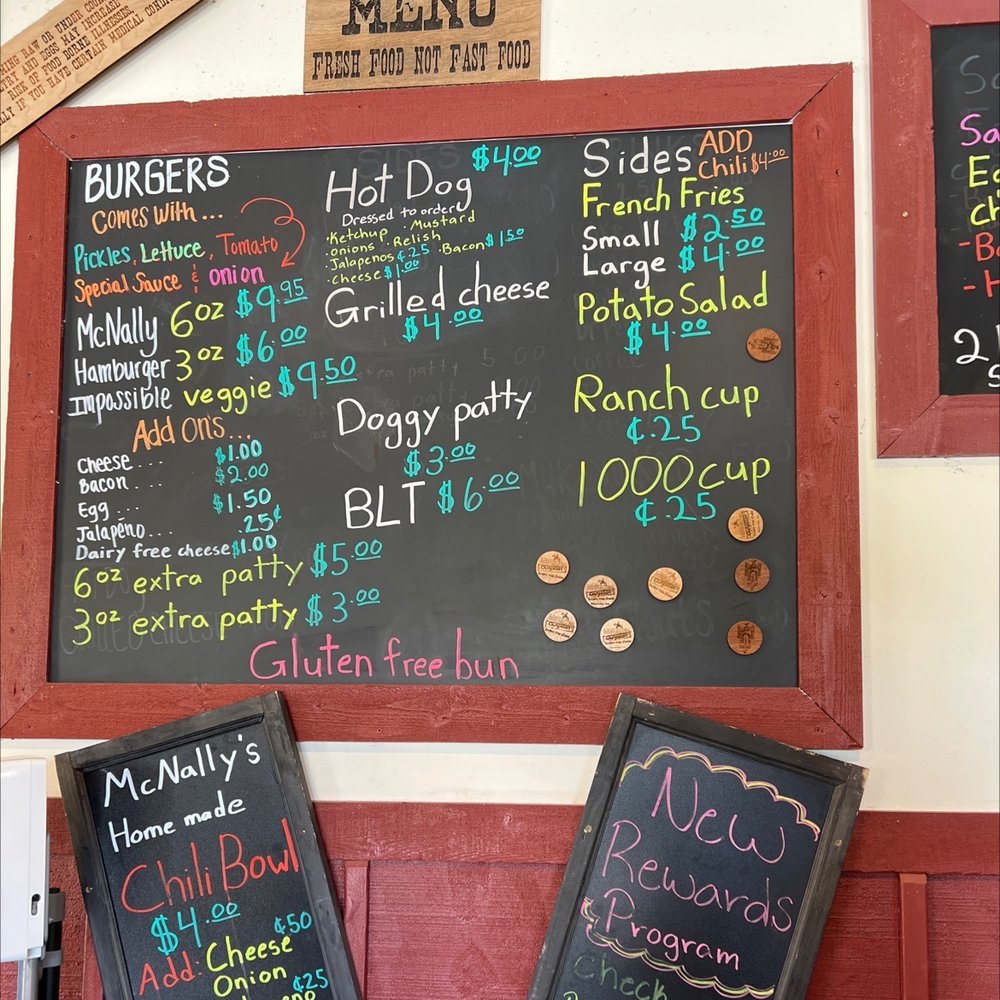 ING RAW OR UNDER COOK
TRY AND EGGS MAY INCREASE
RISK OF FOOD BORNE ILLNESSES,
LLY IF YOU HAVE CERTAIN MEDICAL CONDIT
MENU
FRESH FOOD NOT FAST FOOD
BURGERS
Comes With ...
Pickles, Lettuce, Tomato
Special Sauce & onion
McNally 6oz $9.95
Hamburger 3oz $6.00
Impossible veggie $9.50
Add Ons...
Cheese .... $1.00
Bacon .... $2.00
Egg .... $1.50
Jalapeno... .25¢
Dairy free cheese $1.00
6oz extra patty $5.00
3oz extra patty $3.00
Hot Dog $4.00
Dressed to order
·Ketchup ·Mustard
·Onions ·Relish
·Jalapenos ¢.25 ·Bacon $1.50
·Cheese $1.00
Grilled cheese
$4.00
Doggy patty
$3.00
BLT $6.00
Sides ADD
Chili $4.00
French Fries
Small $2.50
Large $4.00
Potato Salad
$4.00
Ranch cup
¢.25
1000 cup
¢.25
Gluten free bun
McNally's
Home made
Chili Bowl
$4.00
Add: Cheese ¢50
Onion ¢25
New
Rewards
Program
check